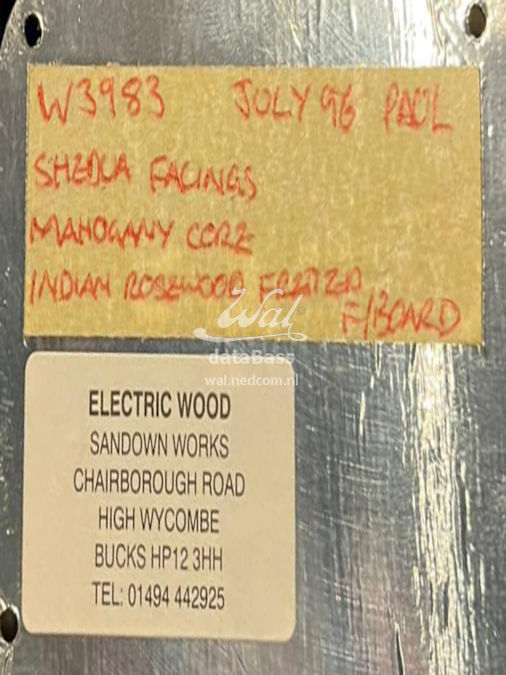 W3983 JULY 96 PAUL
SHEDUA FACINGS
MAHOGANY CORE
INDIAN ROSEWOOD FRETTED
F/BOARD
Wal®
dataBass
wal.nedcom.nl
ELECTRIC WOOD
SANDOWN WORKS
CHAIRBOROUGH ROAD
HIGH WYCOMBE
BUCKS HP12 3HH
TEL: 01494 442925